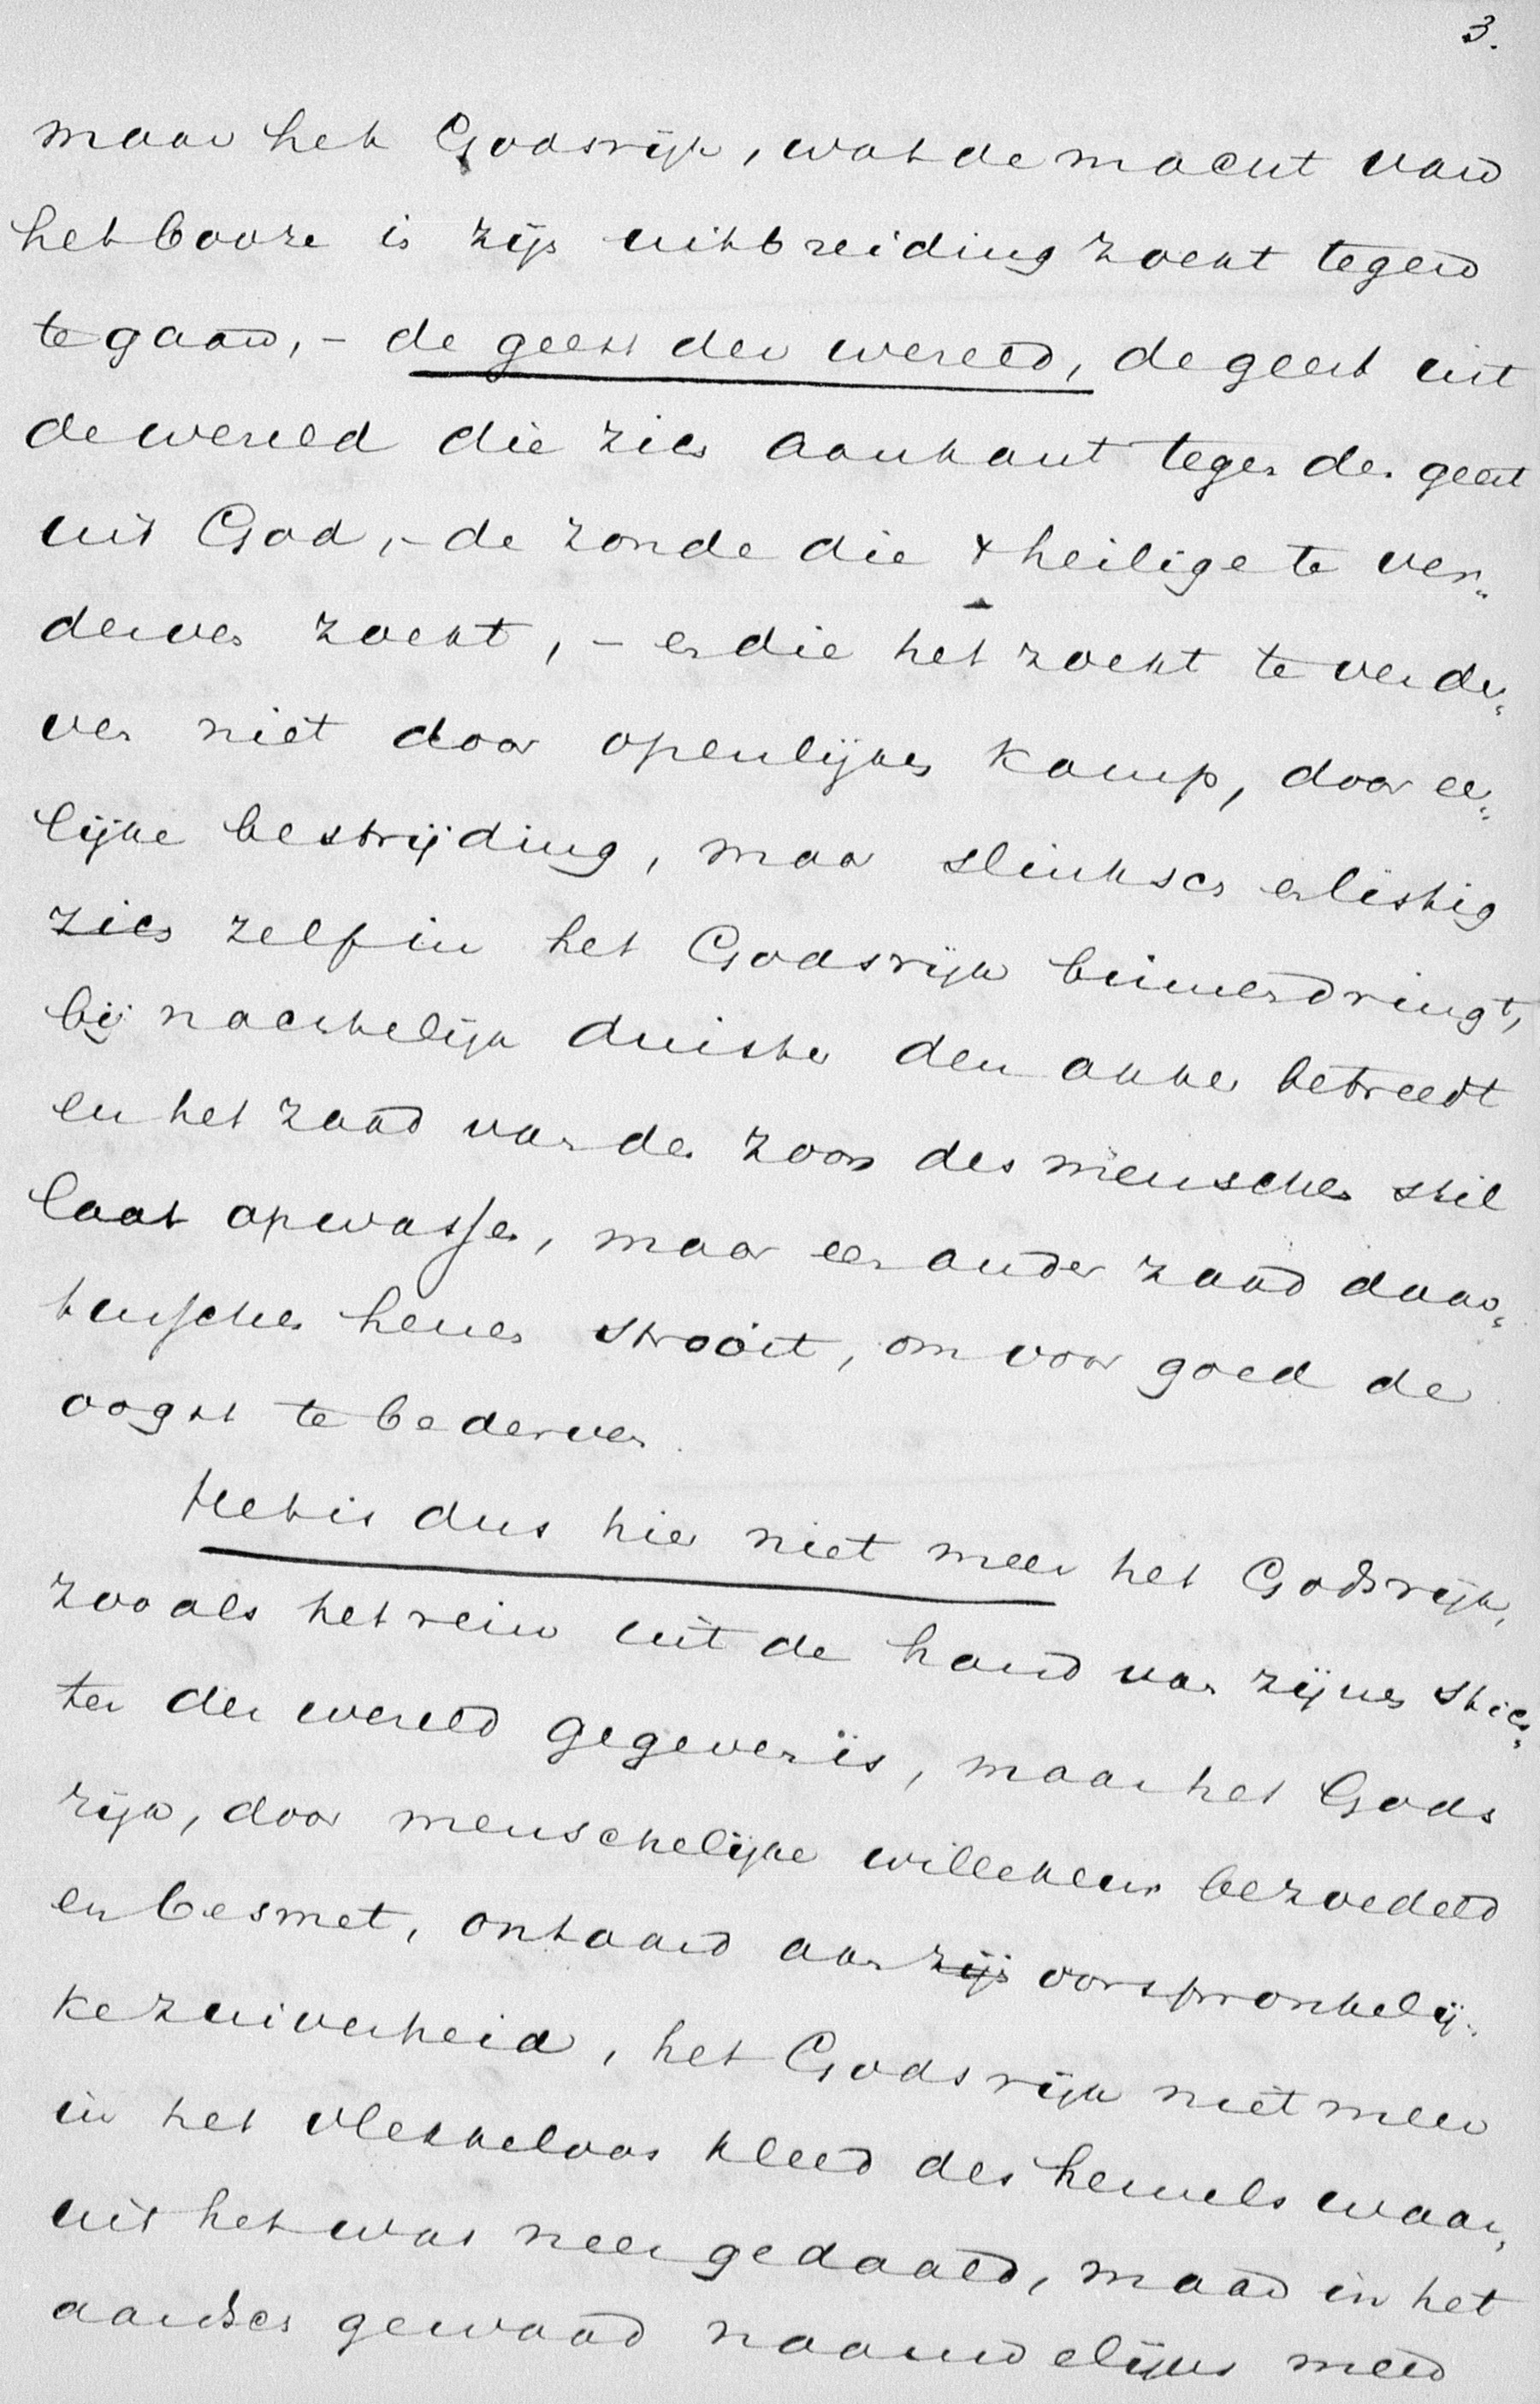 3.
maar het Godsrijk, wat de macht van
het booze is zijn uitbreiding zoekt tegen
te gaan, – de geest der wereld, de geest uit
de wereld die zich aankant tegen den geest
uit God, – de zonde die 't heilige te ver„
derven zoekt, – en die het zoekt te verder„
ven niet door openlijken kamp, door eer„
lijke bestrijding, maar slinksch en listig
zich zelf in het Godsrijk binnendringt,
bij nachtelijk duister den akker betreedt
en het zaad van den zoon des menschen stil
laat opwassen, maar een ander zaad daar„
tusschen henen strooit, om voor goed de
oogst te bederven.
Het is dus hier niet meer het Godsrijk,
zooals het rein uit de hand van zijnen Stich„
ter der wereld gegeven is, maar het Gods
rijk, door menschelijke willekeur bezoedeld
en besmet, ontaard aan zijn oorspronkelij„
ke zuiverheid, het Godsrijk niet meer
in het vlekkeloos kleed des hemels waar„
uit het was neergedaald, maar in het
aardsch gewaad nauwelijks meer